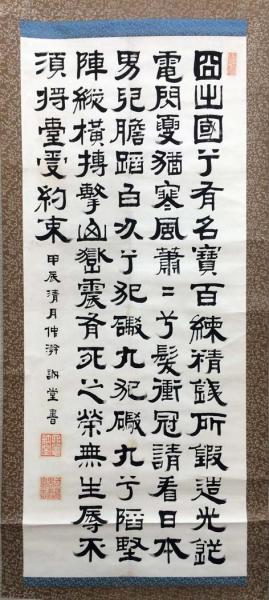 出國兮有名寶百練精鐵所鍛造光鋩
電閃夏猶寒風蕭〻兮髮衝冠請看日本
男兒膽蹈白刃兮犯礮丸犯礮丸兮陷堅
陣縱橫搏擊山嶽震有死之榮無生辱不
須將臺受約束 甲辰清月仲澣 訥堂書